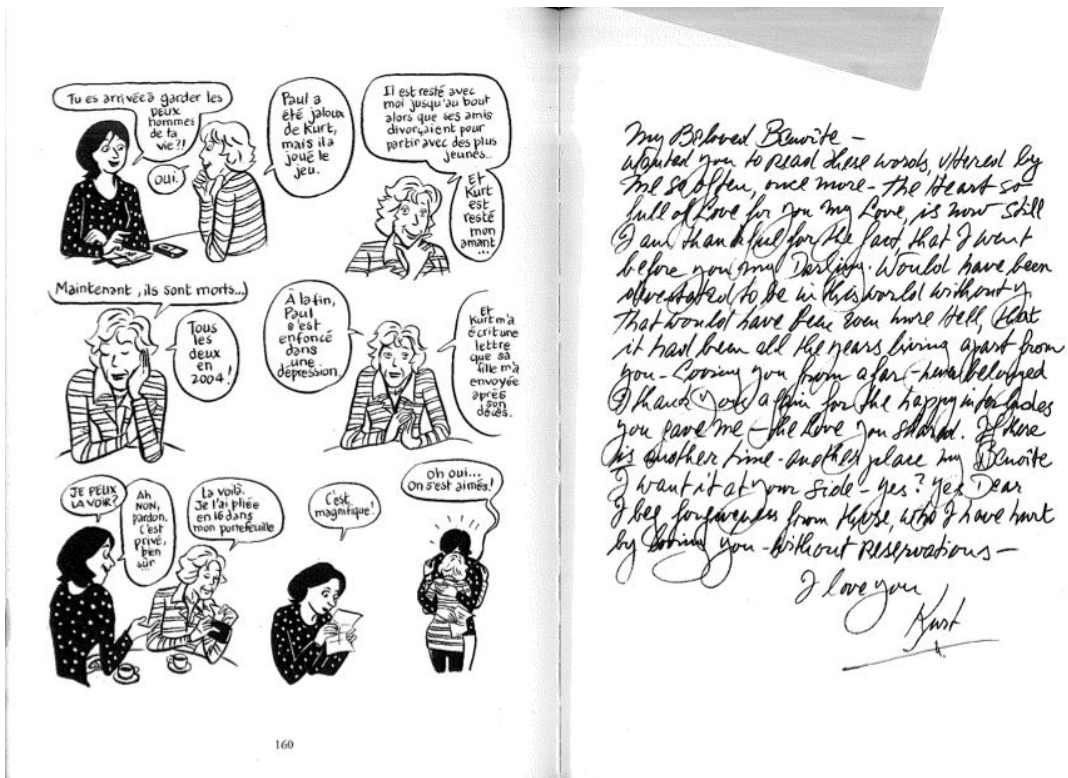 Tu es arrivée à garder les
deux
hommes
de ta
vie ?!
oui.
Paul a
été jaloux
de Kurt,
mais il a
joué le
jeu.
Il est resté avec
moi jusqu'au bout
alors que ses amis
divorçaient pour
partir avec des plus
jeunes...
Et
Kurt
est
resté
mon
amant
...
Maintenant, ils sont morts...
Tous
les
deux
en
2004 !
À la fin,
Paul
s'est
enfoncé
dans
une
dépression.
Et
Kurt m'a
écrit une
lettre
que sa
fille m'a
envoyée
après
son
décès.
JE PEUX
LA VOIR ?
Ah
NON,
pardon.
C'est
privé,
bien
sûr
...
La voilà.
Je l'ai pliée
en 16 dans
mon portefeuille
C'est
magnifique !
Oh oui...
On s'est aimés !
160
My Beloved Benoîte –
wanted you to read these words, uttered by
me so often, once more – the Heart so
full of Love for you my Love, is now still
I am thankful for the fact, that I went
before you my Darling. Would have been
devastated to be in this world without y.
that would have been even more Hell, that
it had been all the years living apart from
you – Loving you from afar – her beloved
I thank you again for the happy interludes
you gave me – the Love you shared. If there
is another time – another place my Benoîte
I want it at your side – yes? yes Dear
I beg forgiveness from those, who I have hurt
by loving you – without reservations –
I love you
Kurt